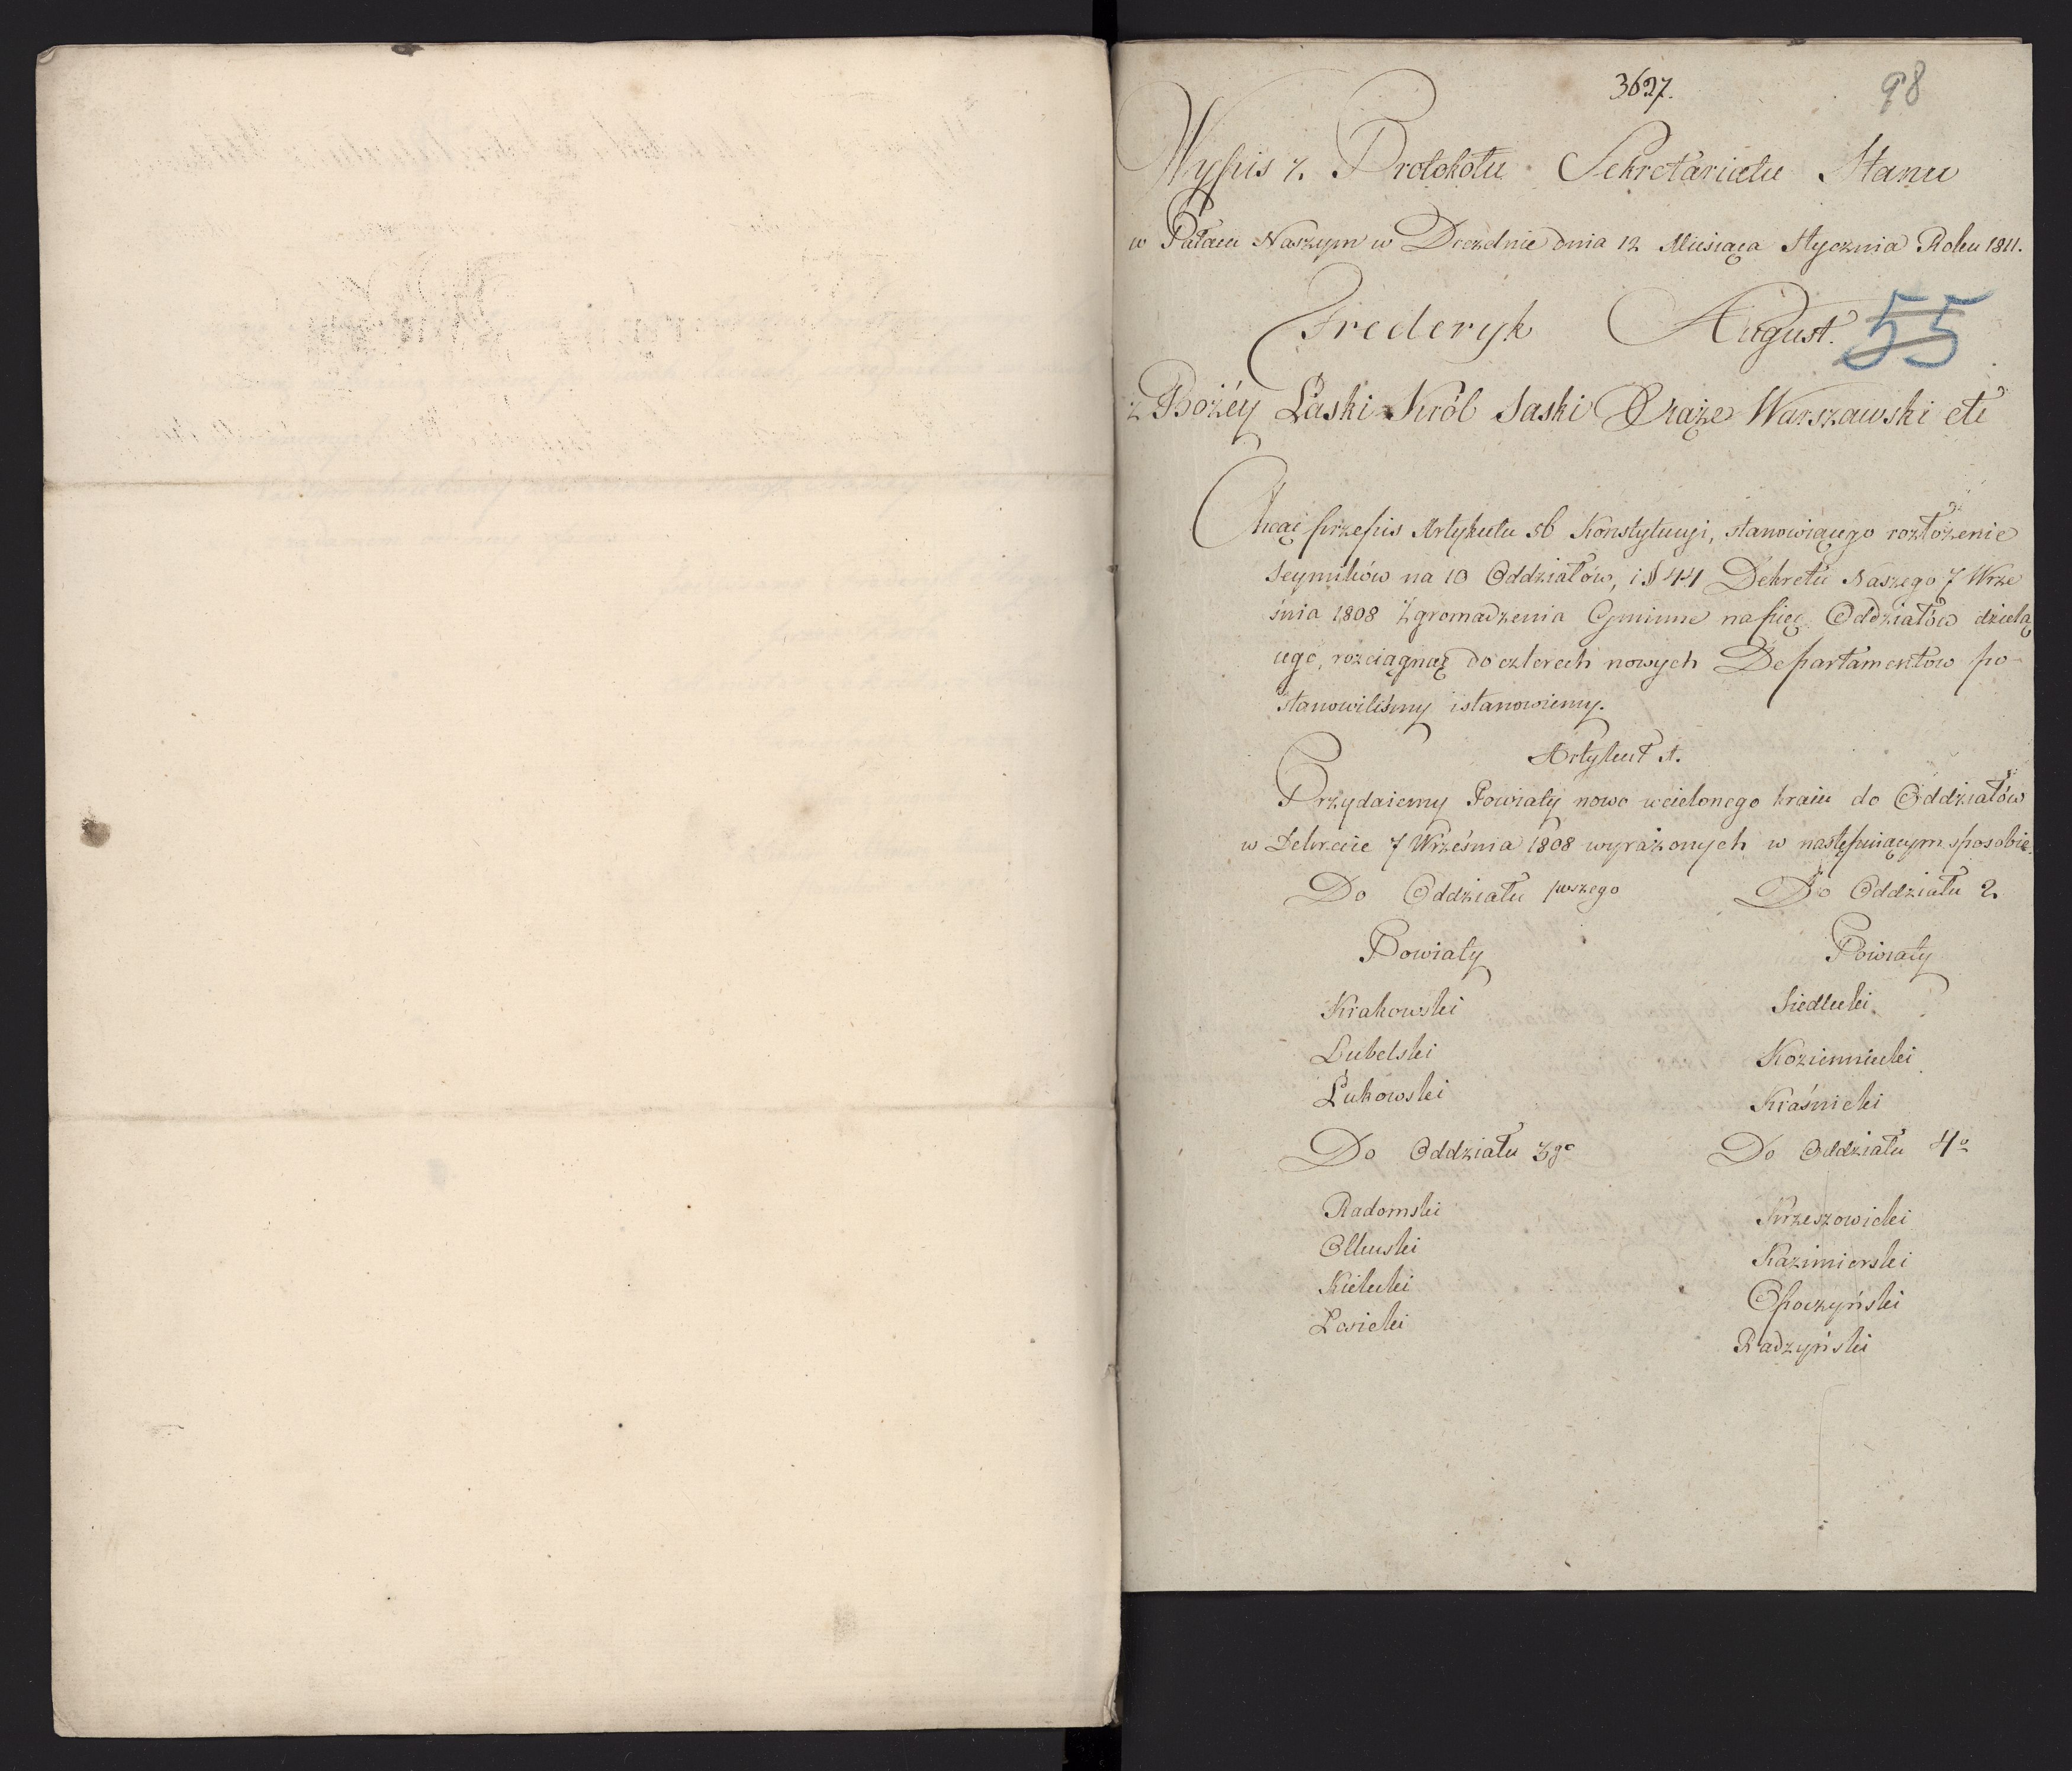 3627.
98
Wypis z Protokołu Sekretariatu Stanu
w Pałacu Naszym w Dreznie dnia 12 Miesiąca Stycznia Roku 1811.
Frederyk August.
55
z Bożéy Łaski Król Saski Xiąże Warszawski etc
Chcąc przepis Artykułu 56 Konstytucyi, stanowiącego rozłożenie
Seymików na 10 Oddziałów, i § 44 Dekretu Naszego 7 Wrze
śnia 1808 Zgromadzenia Gminne na pięć Oddziałów dzielą
cego, rozciągnąć do czterech nowych Departamentów po-
stanowiliśmy i stanowiemy.
Artykuł 1.
Przydaiemy Powiaty nowo wcielonego kraiu do Oddziałów
w Dekrecie 7 Września 1808 wyrażonych w następuiącym sposobie.
Do Oddziału pwszego
Do Oddziału 2
Powiaty
Powiaty
Krakowski
Siedlecki
Lubelski
Kozienniecki
Łukowski
Kraśnicki
Do Oddziału 3go
Do Oddziału 4o
Radomski
Krzeszowicki
Olkuski
Kazimierski
Kielecki
Opoczyński
Łosicki
Radzyński